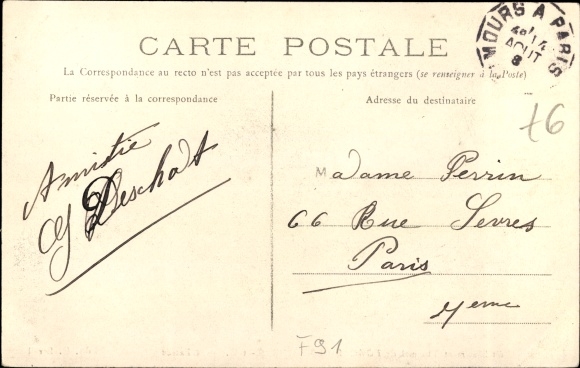 CARTE POSTALE
La Correspondance au recto n'est pas acceptée par tous les pays étrangers (se renseigner à la Poste)
Partie réservée à la correspondance
Adresse du destinataire
MOURS A PARIS
AOUT
8
76
Amitié
Deschodt
Madame Perrin
66 Rue Sevres
Paris
7eme
F91